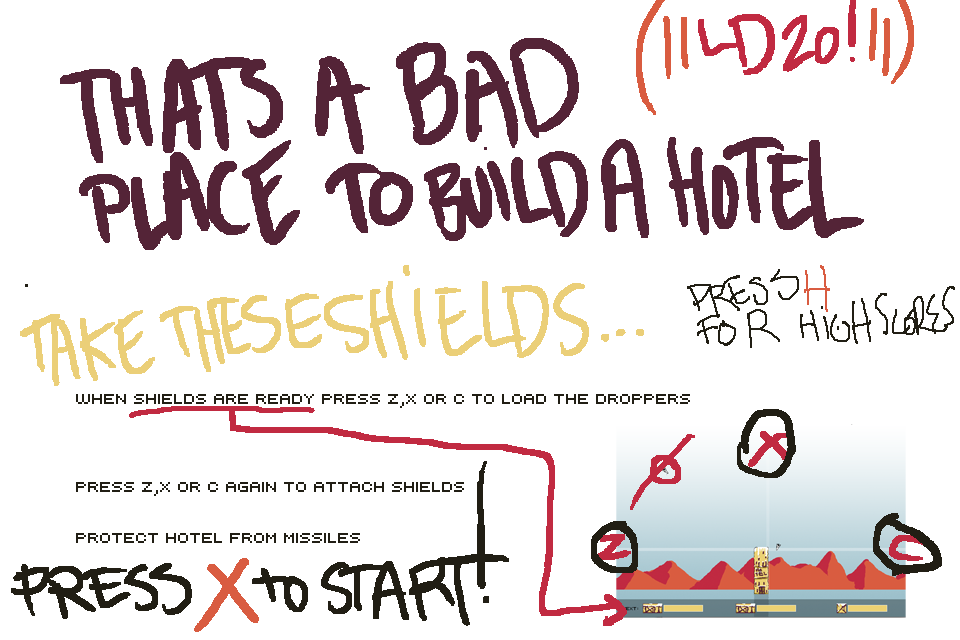 ((||LD20!|||)
THATS A BAD
PLACE TO BUILD A HOTEL
TAKE THESE SHIELDS...
PRESS H
FOR HIGHSCORES
WHEN SHIELDS ARE READY PRESS Z,X OR C TO LOAD THE DROPPERS
X
PRESS Z,X OR C AGAIN TO ATTACH SHIELDS
PROTECT HOTEL FROM MISSILES
Z
C
PRESS X to START!